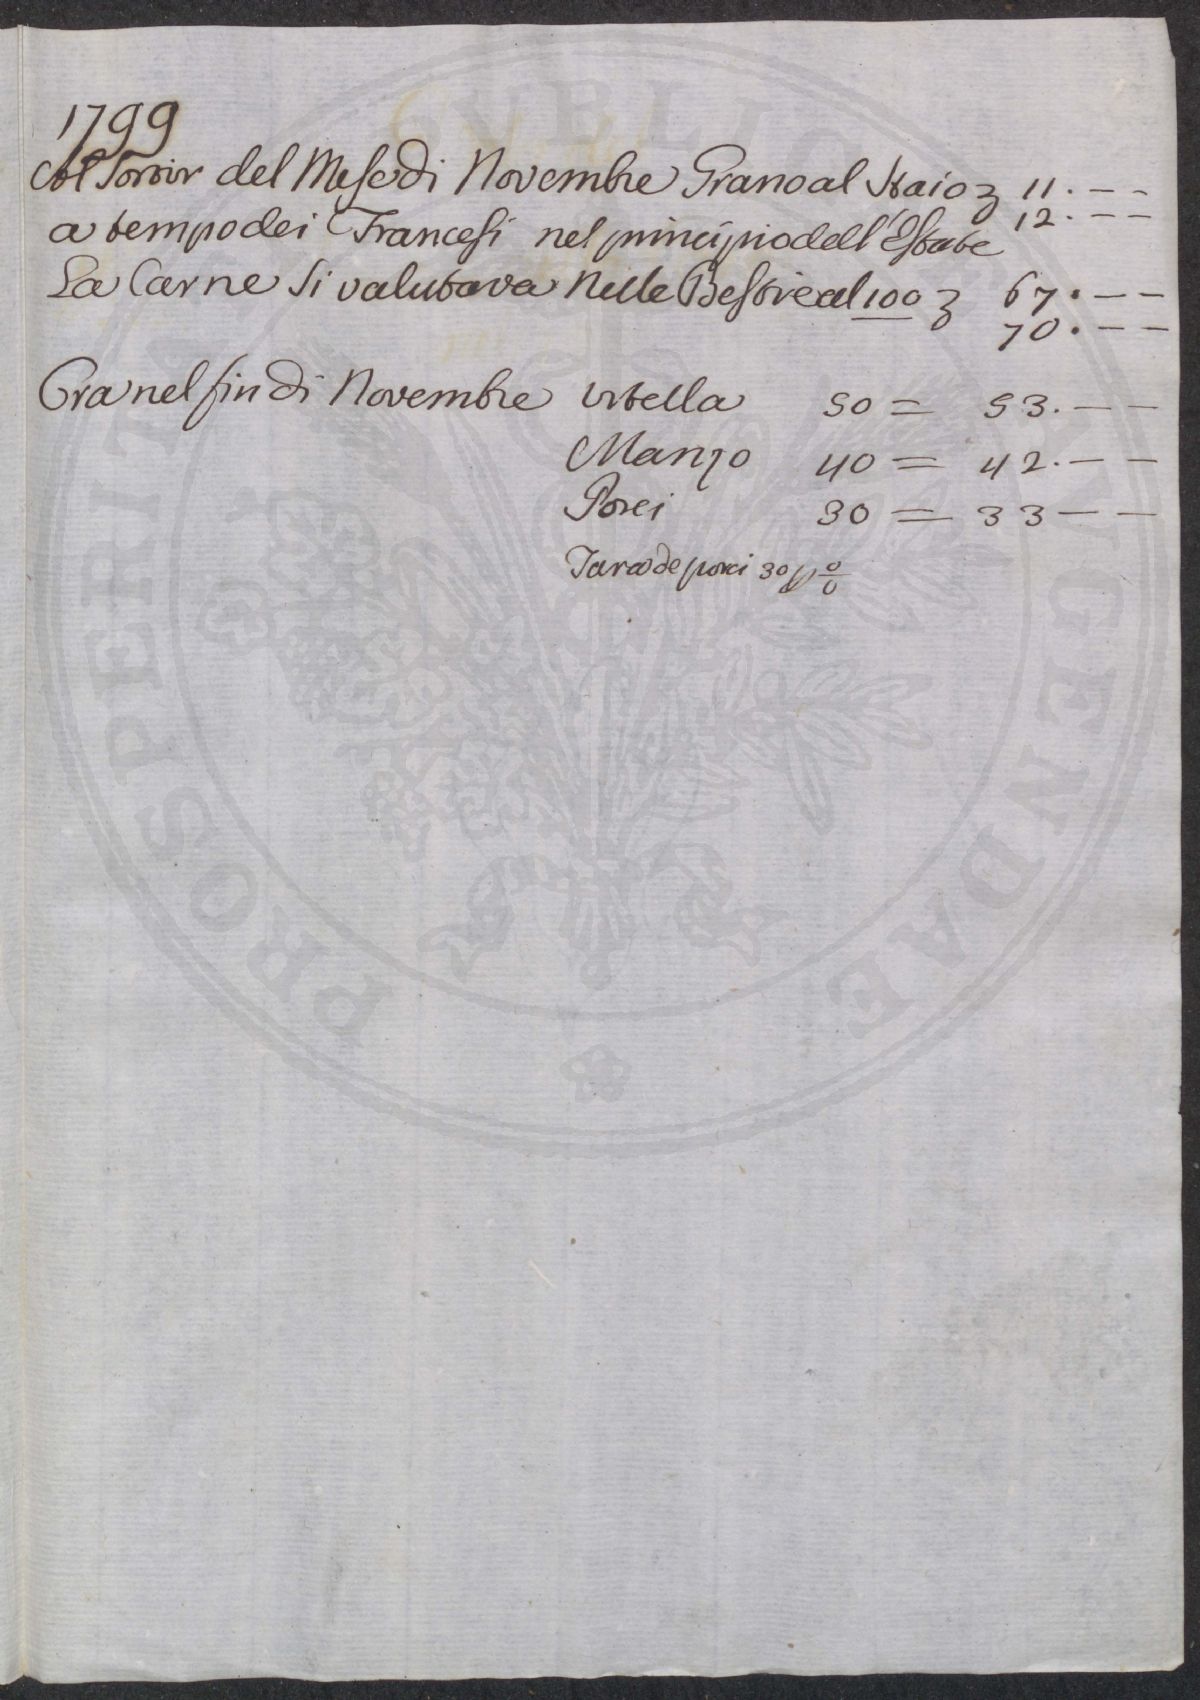 1799
Col Sortir del Mese di Novembre Grano al Staio 3 11. — —
12. — —
a tempo dei Francesi nel principio dell'Estate
La Carne Si valutava Nelle Bestie al 100 3 67. — —
70. — —
Ora nel fin di Novembre Vitella 50 = 53. — —
Manzo 40 = 42. — —
Porci 30 = 33 — —
Tara de porci 30 p 0/0
PROSPERITATI AUGENDAE